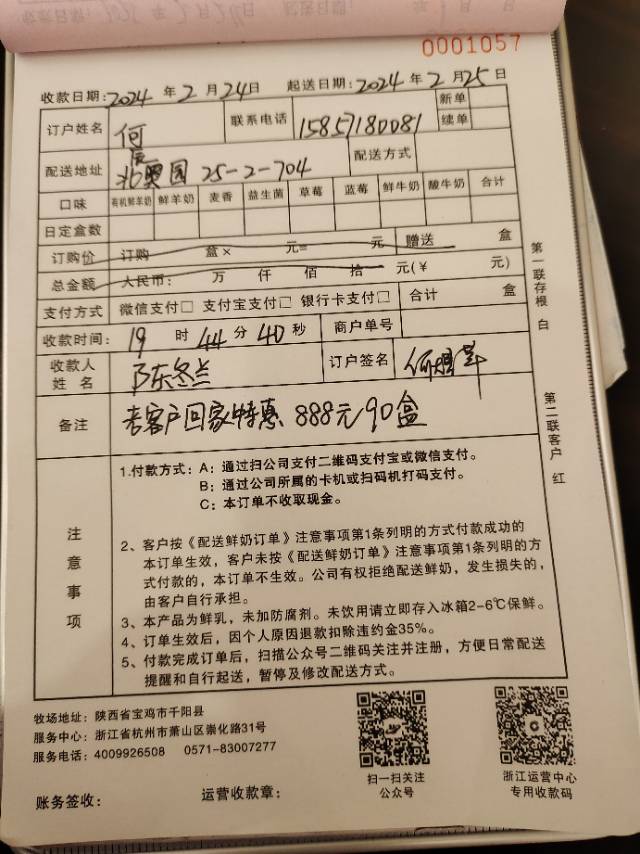 0001057
收款日期:2024 年 2 月 24日 起送日期:2024 年 2 月 25日
订户姓名 何 联系电话 15857180081 新单
续单
配送地址 北奥园 25-2-704 配送方式
口味 有机鲜羊奶 鲜羊奶 麦香 益生菌 草莓 蓝莓 鲜牛奶 酸牛奶 合计
日定盒数
订购价 订购 盒× 元= 元 赠送 盒
总金额 人民币: 万 仟 佰 拾 元(¥ 元)
支付方式 微信支付□ 支付宝支付□ 银行卡支付□ 合计 盒
收款时间: 19 时 44 分 40 秒 商户单号
收款人
姓 名 陈冬兰 订户签名
备注 老客户回家特惠 888元90盒
注意事项
1.付款方式: A: 通过扫公司支付二维码支付宝或微信支付。
B: 通过公司所属的卡机或扫码机打码支付。
C: 本订单不收取现金。
2、客户按《配送鲜奶订单》注意事项第1条列明的方式付款成功的
本订单生效，客户未按《配送鲜奶订单》注意事项第1条列明的方
式付款的，本订单不生效。公司有权拒绝配送鲜奶，发生损失的，
由客户自行承担。
3、本产品为鲜乳，未加防腐剂。未饮用请立即存入冰箱2-6℃保鲜。
4、订单生效后，因个人原因退款扣除违约金35%。
5、付款完成订单后，扫描公众号二维码关注并注册，方便日常配送
提醒和自行起送，暂停及修改配送方式。
第一联存根 白
第二联客户 红
牧场地址: 陕西省宝鸡市千阳县
服务中心: 浙江省杭州市萧山区崇化路31号
服务电话: 4009926508 0571-83007277
扫一扫关注
公众号
浙江运营中心
专用收款码
账务签收: 运营收款章: